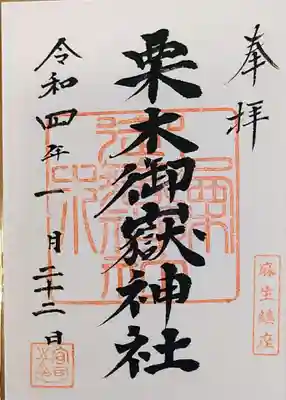 奉拝
栗木御嶽神社
令和四年一月二十二日
麻生鎮座